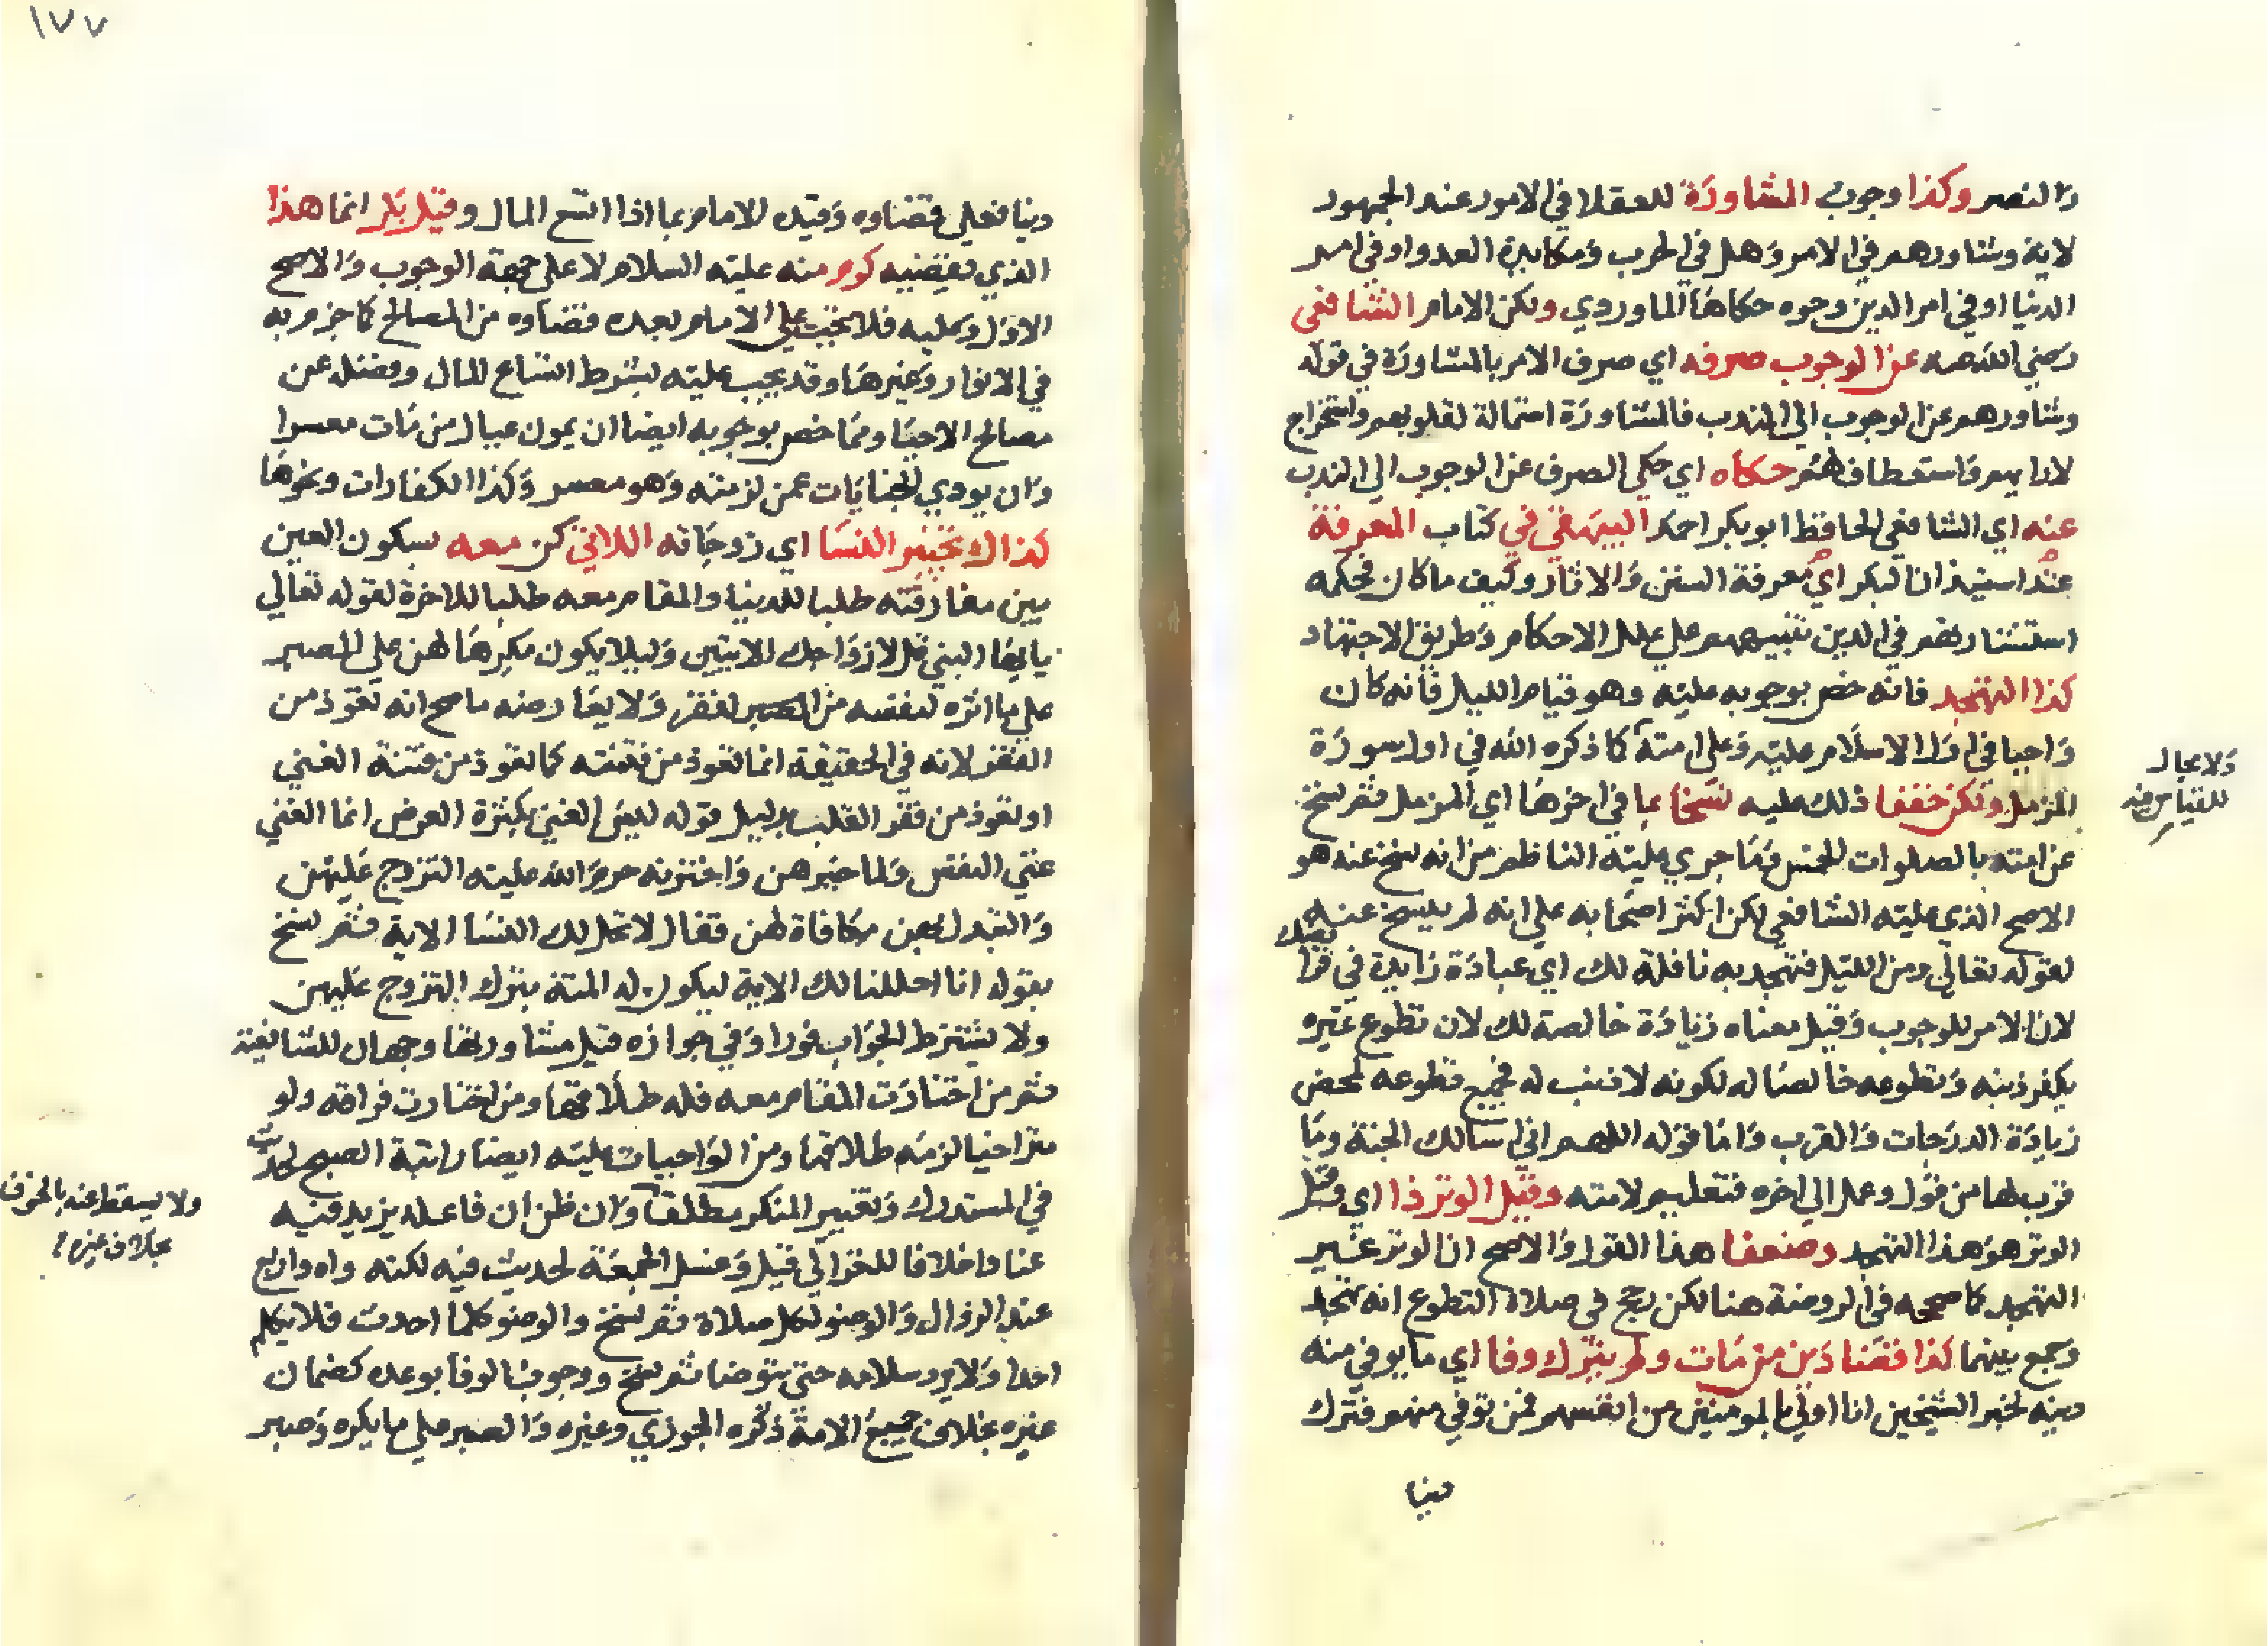 والنصر وكذا وجوب المشاورة للعقلا في الامور عند الجمهور
لاية وشاورهم في الامر وهل في الحرب ومكايدة العدو او في امر
الدنيا او في امر الدين وجوه حكاها الماوردي ولكن الامام الشافعي
رضي الله عنه عن الوجوب صرفه اي صرف الامر بالمشاورة في قوله
وشاورهم عن الوجوب الي الندب فالمشاورة استمالة لقلوبهم واستخراج
لارايهم واستعطافا لهم حكاه اي حكي الصرف عن الوجوب الي الندب
عنه اي الشافعي الحافظ ابو بكر احمد البيهقي في كتاب المعرفة
عند استيذان البكر اي معرفة السنن والاثار وكيف ما كان فحكمه
استشارتهم في الدين تنبيههم علي علل الاحكام وطريق الاجتهاد
كذا التهجد فانه خص بوجوبه عليه وهو قيام الليل فانه كان
واجبا في اول الاسلام عليه وعلي امته كما ذكره الله في اول سورة
المزمل ولكن خففا ذلك عليه نسخا بما في اخرها اي المزمل ثم نسخ
عن امته بالصلوات الخمس وما جري عليه الناظم من انه نسخ عنه هو
الاصح الذي عليه الشافعي لكن اكثر اصحابه علي انه لم ينسخ عنه
لقوله تعالي ومن الليل فتهجد به نافلة لك اي عبادة زايدة في فرا
يضك
لان الامر للوجوب وقيل معناه زيادة خالصة لك لان تطوع غيره
يكفر ذنبه وتطوعه خالصا له لكونه لا ذنب له فجميع تطوعه لمحض
زيادة الدرجات والقرب واما قوله اللهم اني اسالك الجنة وما
قرب لها من قول وعمل الي اخره فتعليم لامته وقيل الوتر ذا اي وقيل
الوتر هو هذا التهجد وضعفا هذا القول والاصح ان الوتر غير
التهجد كما صححه في الروضة هنا لكن رجح في صلاة التطوع انه تهجد
وجمع بينهما كذا قضا دين من مات ولم يترك وفا اي ما يوفي منه
دينه لخبر الشيخين انا اولي بالمومنين من انفسهم فمن توفي منهم فترك
دينا
ولا مجال
للقياس فيه
١٧٧
دينا فعلي قضاوه وقيده الامام بما اذا اتسع المال وقيل بل انما هذا
الذي يقضيه كرم منه عليه السلام لا علي جهة الوجوب والاصح
الاول وعليه فلا يجب علي الامام بعده قضاوه من المصالح كما جزم به
في الانوار وغيرها وقد يجب عليه بشرط اتساع المال وفضل عن
مصالح الاحيا ومما خص بوجوبه ايضا ان يمون عيال من مات معسرا
وان يودي الجنايات عمن لزمته وهو معسر وكذا الكفارات ونحوها
كذاك تخيير النسا اي زوجاته اللاتي كن معه بسكون العين
بين مفارقته طلبا للدنيا والمقام معه طلبا للاخرة لقوله تعالي
يا ايها النبي قل لازواجك الايتين وليلا يكون مكرها لهن علي الصبر
علي ما اثره لنفسه من الصبر لفقر ولا يعارضه ما صح انه تعوذ من
الفقر لانه في الحقيقة انما تعوذ من فتنته كما تعوذ من فتنة الغني
او تعوذ من فقر القلب بدليل قوله ليس الغني بكثرة العرض انما الغني
غني النفس ولما خيرهن واخترنه حرم الله عليه التزوج عليهن
والتبدل بهن مكافاة لهن فقال لا تحل لك النسا الاية ثم نسخ
بقوله انا احللنا لك الاية ليكون له المنة بترك التزوج عليهن
ولا يشترط الجواب فورا وفي جوازه قبل مشاورتها وجهان للشافعية
ثم من اختارت المقام معه فله طلاقها ومن اختارت فراقه ولو
متراخيا لزمه طلاقها ومن الواجبات عليه ايضا راتبة الصبح لحديث
في المستدرك وتغيير المنكر مطلقا وان ظن ان فاعله يزيد فيه
عنادا خلافا للغزالي قيل وغسل الجمعة لحديث فيه لكنه واه واربع
عند الزوال والوضو لكل صلاة ثم نسخ والوضو كلما احدث فلا يكلم
احدا ولا يرد سلامه حتي يتوضا ثم نسخ ووجوب الوفا بوعده كضمان
غيره بخلاف جميع الامة ذكره الجوزي وغيره والصبر علي ما يكره وصبر
ولا يسقط عنه بالخوف
بخلاف غيره